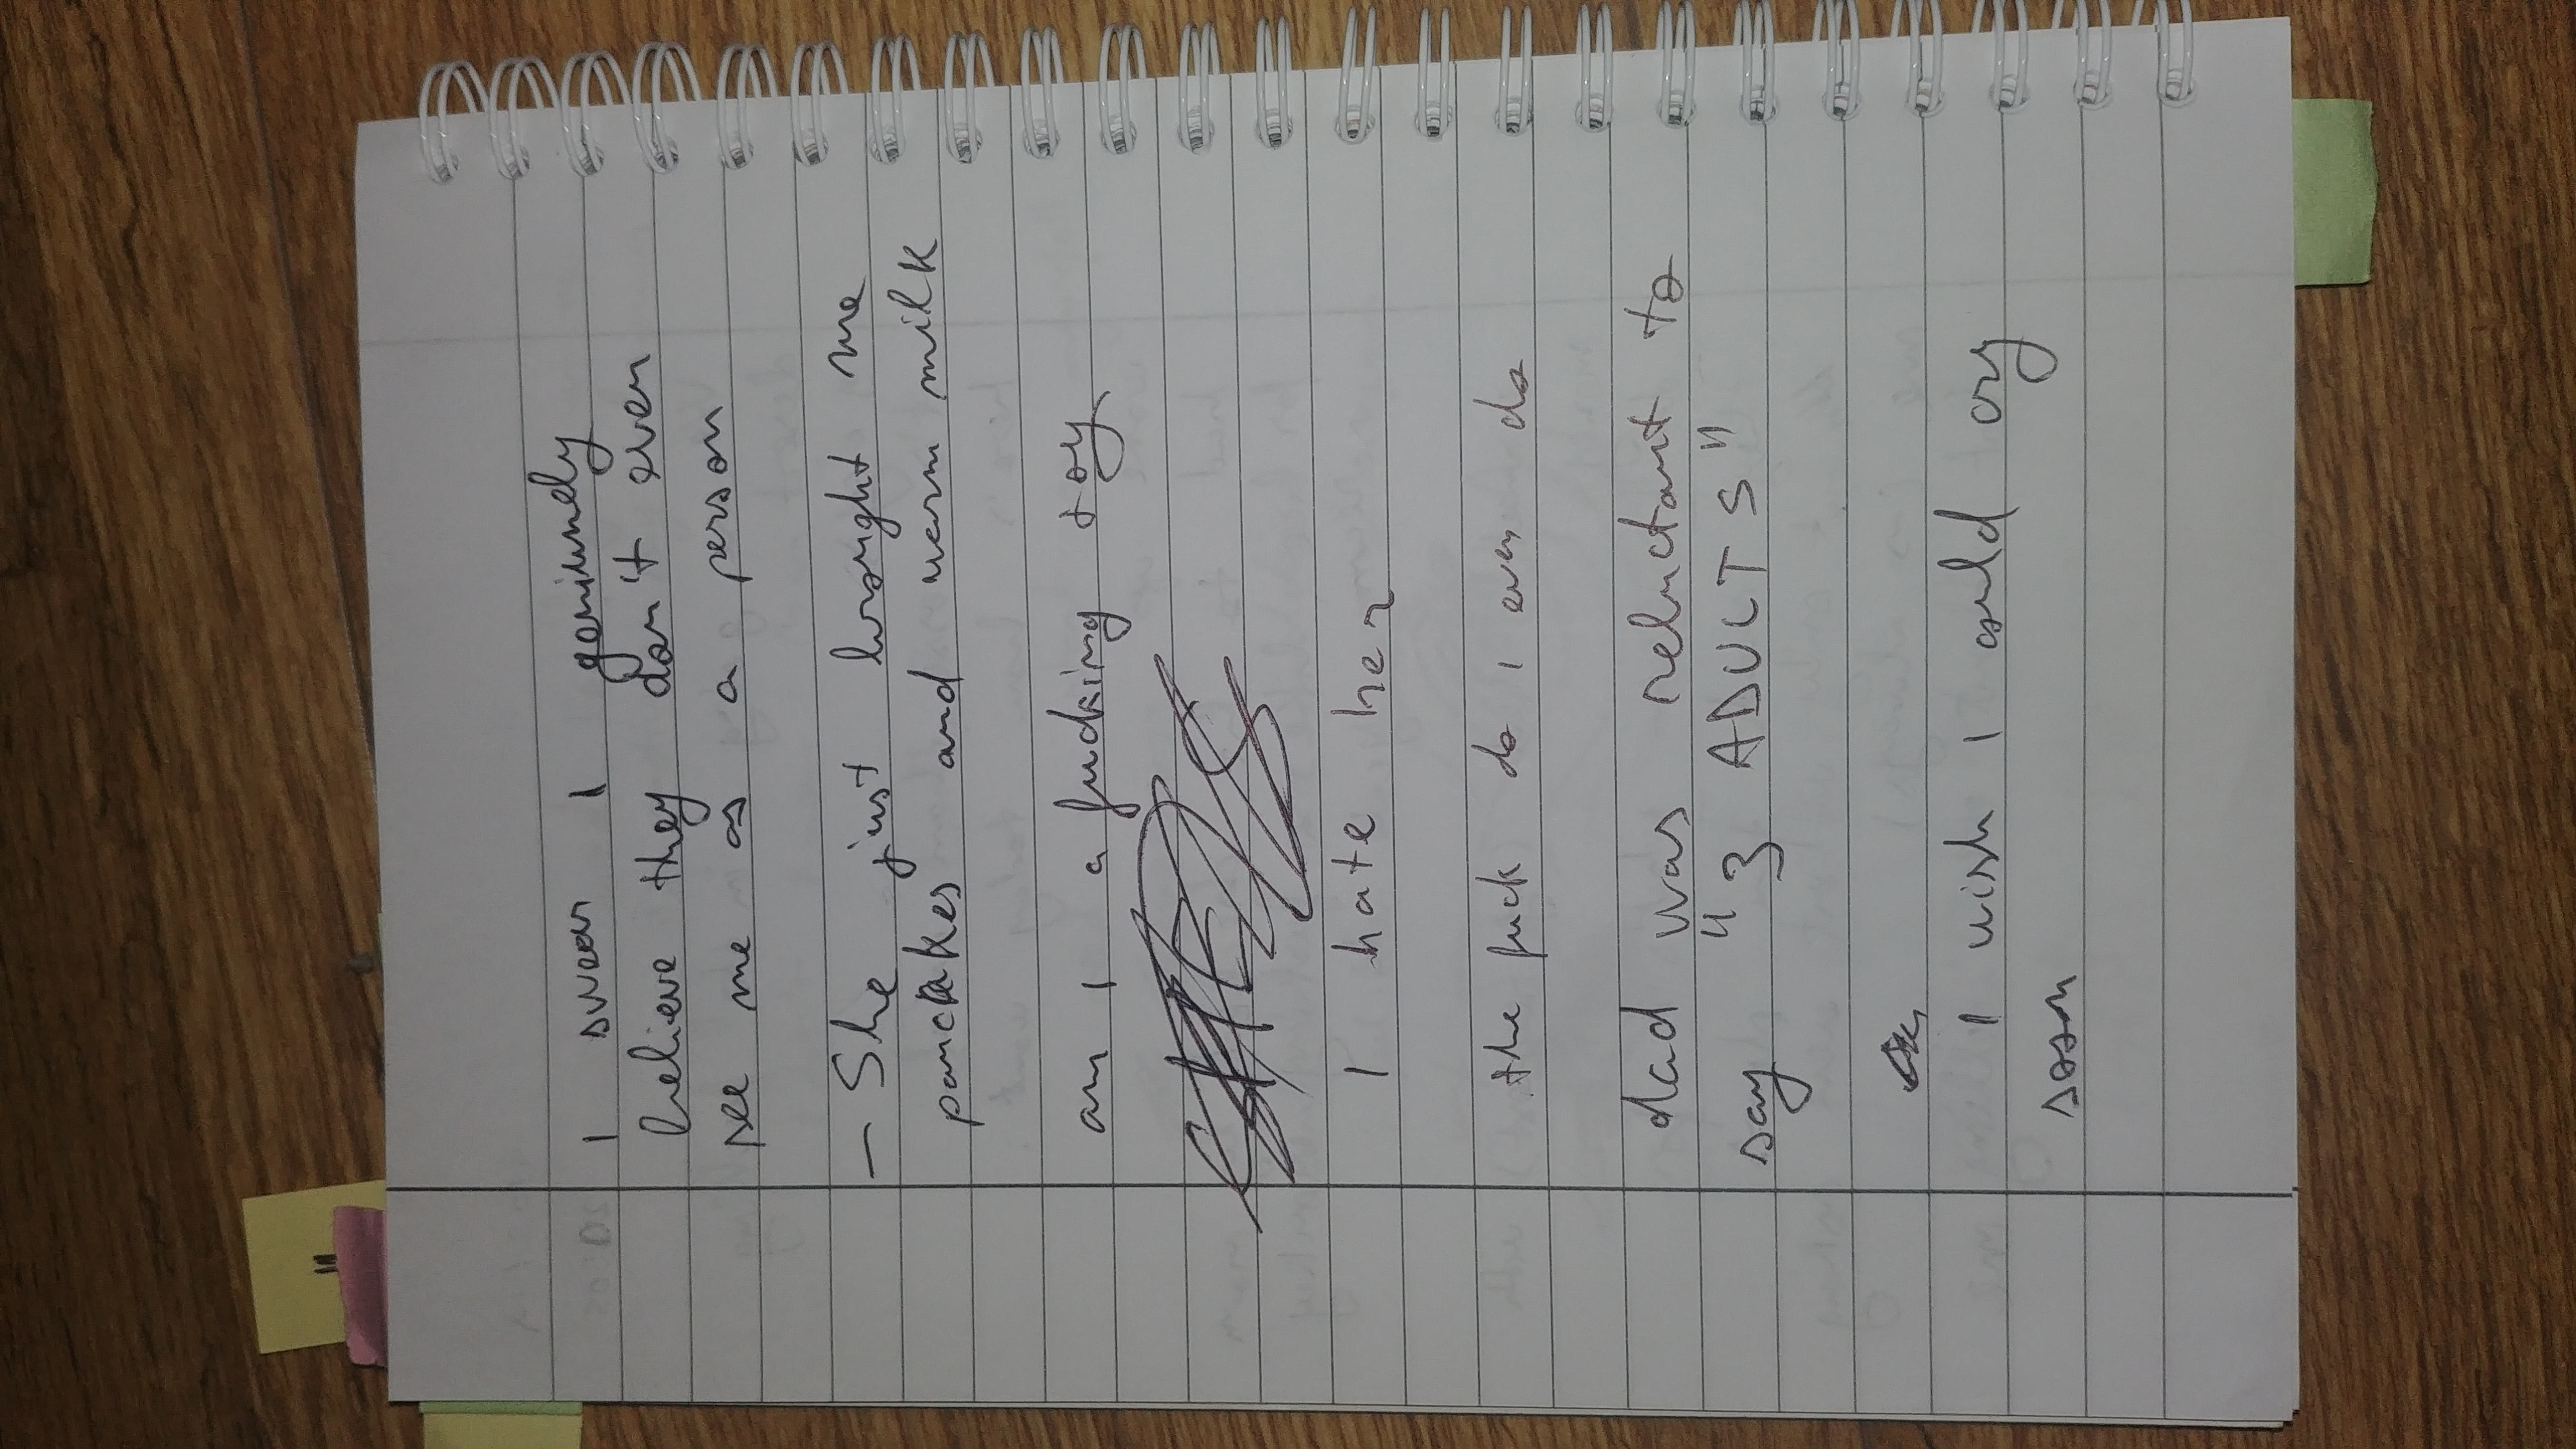 I swear I geniunely
believe they don't even
see me as a person
— She just brought me
pancakes and warm milk
am I a fucking toy
I hate her
the fuck do I even do
dad was reluctant to
say "3 ADULTS"
I wish I could cry
soon